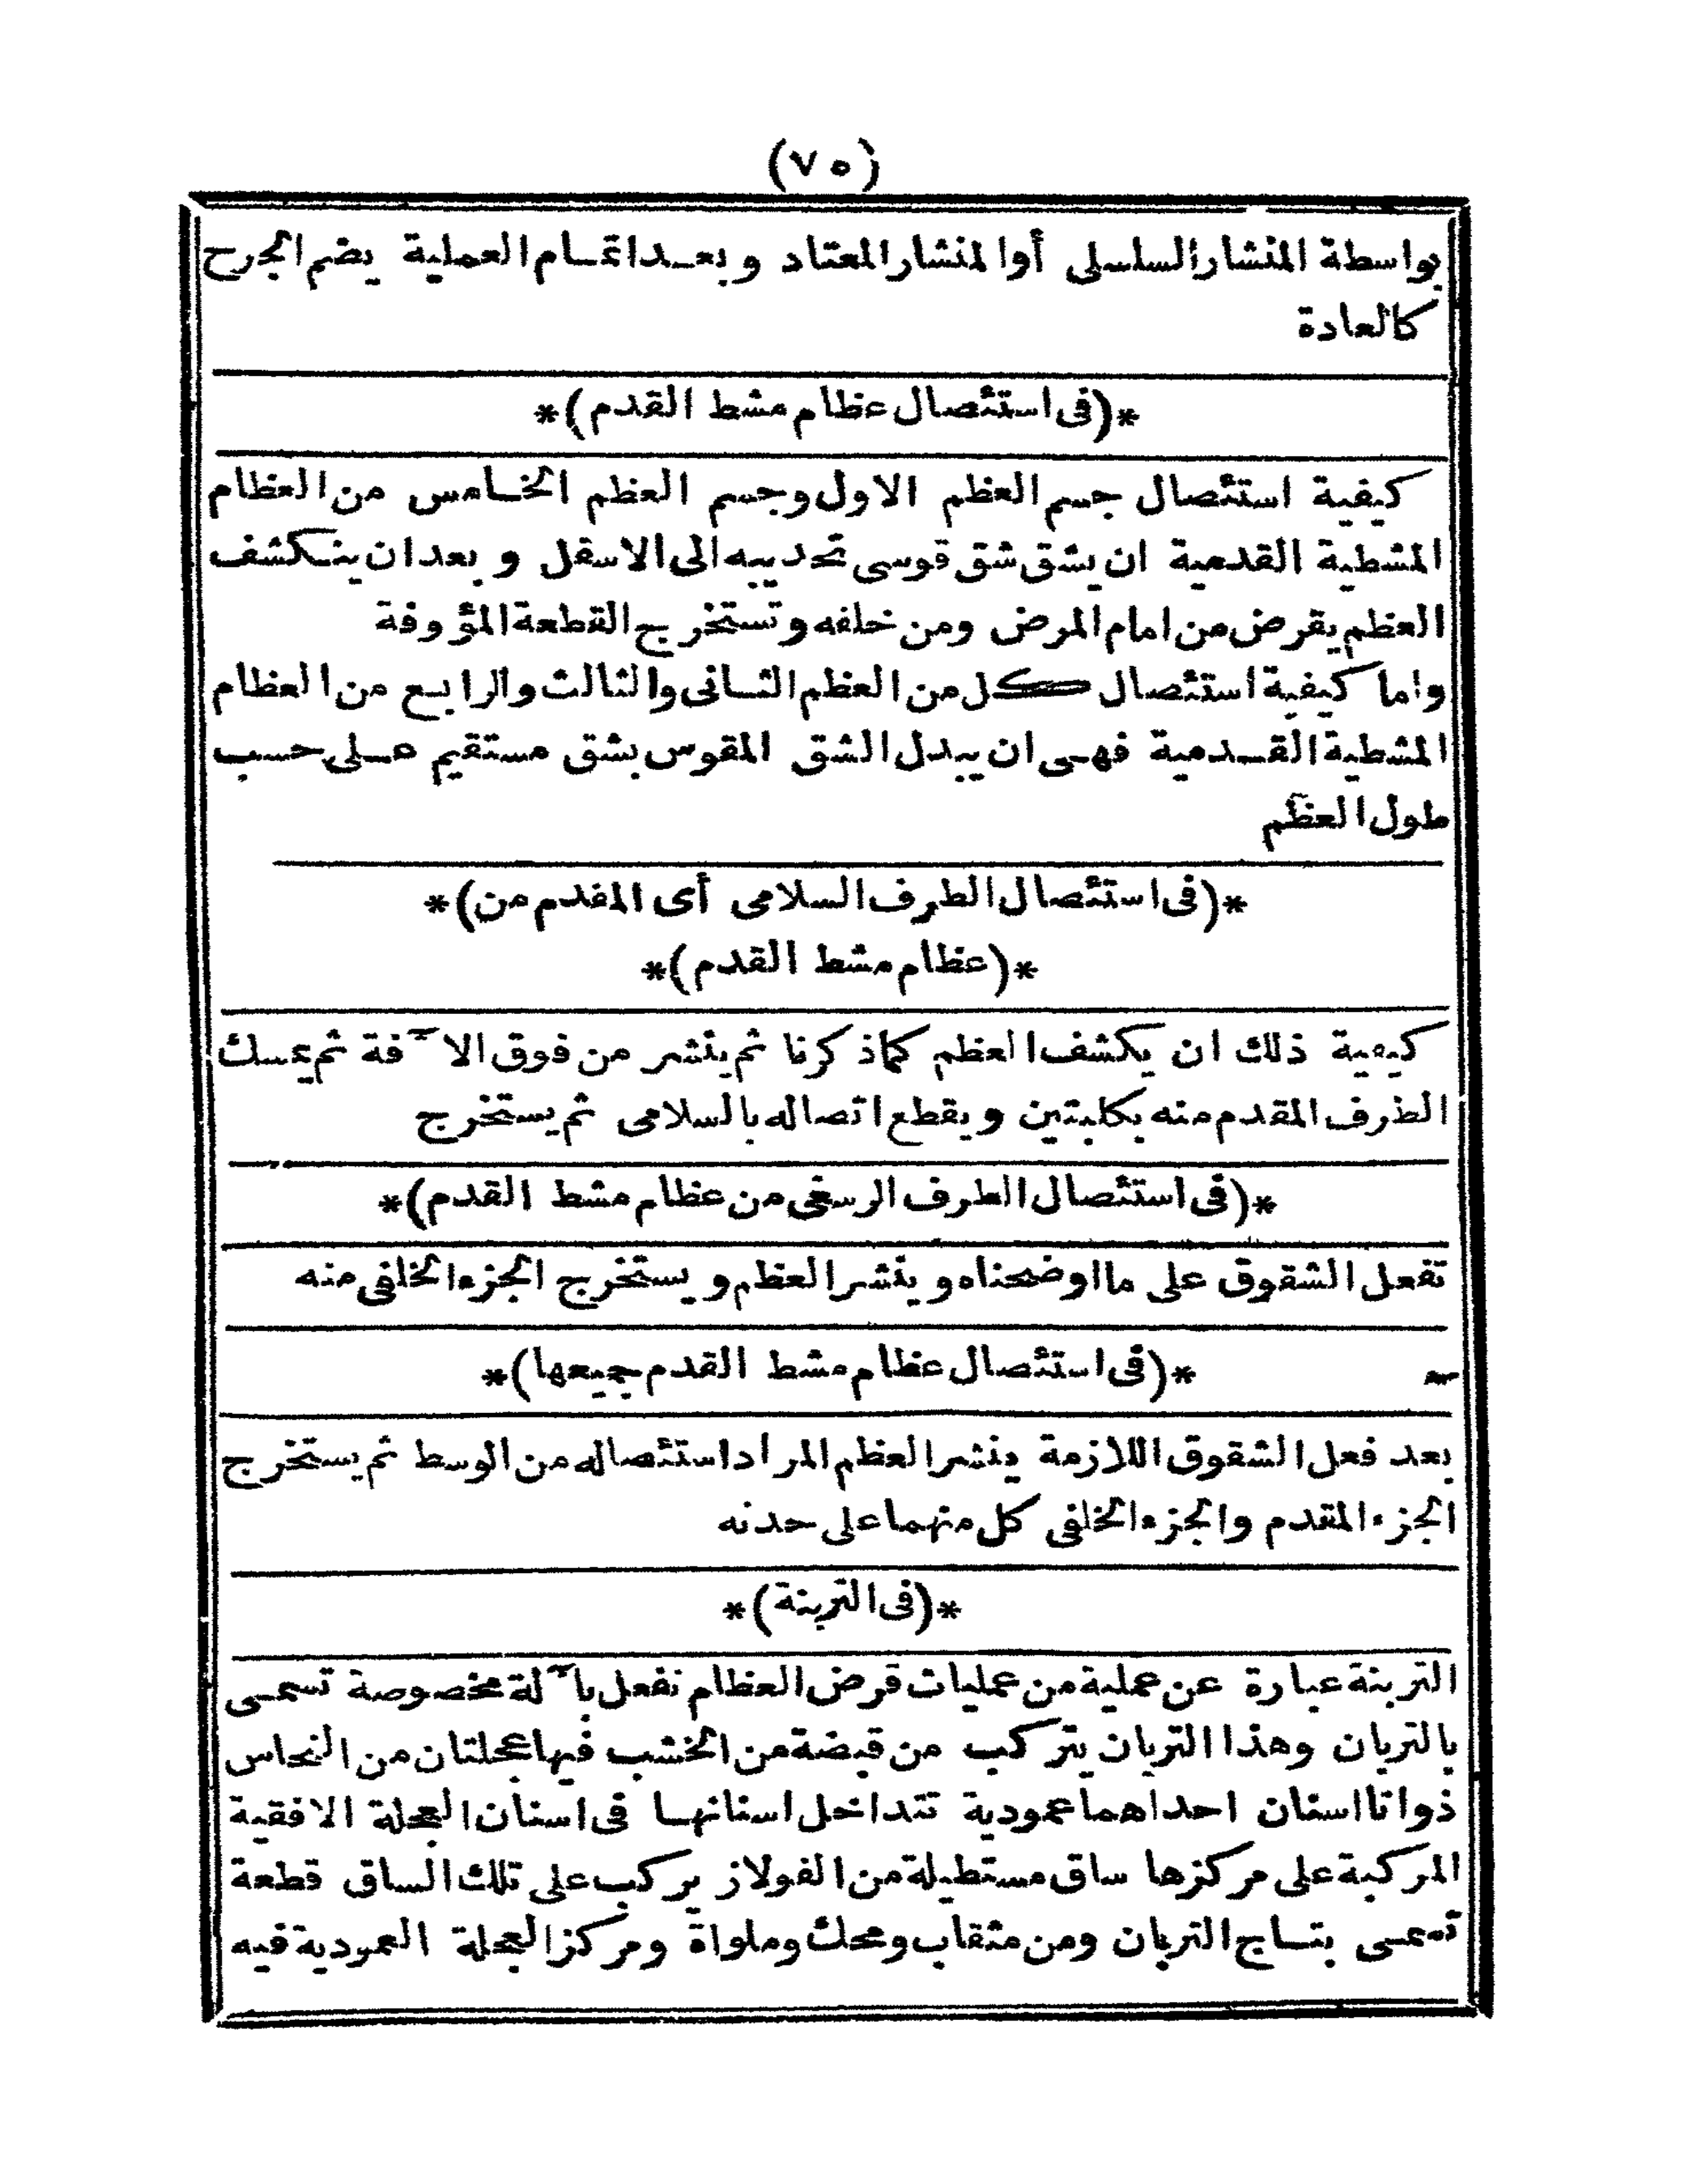 (٧٥)
بواسطة المنشار السلسلى أو المنشار المعتاد وبعد اتمام العملية يضم الجرح
كالعادة
*(فى استئصال عظام مشط القدم)*
كيفية استئصال جسم العظم الاول وجسم العظم الخامس من العظام
المشطية القدمية ان يشق شق قوسى تحديبه الى الاسفل وبعد ان ينكشف
العظم يقرض من امام المرض ومن خلفه وتستخرج القطعة المؤوفة
واما كيفية استئصال كل من العظم الثانى والثالث والرابع من العظام
المشطية القدمية فهى ان يبدل الشق المقوس بشق مستقيم على حسب
طول العظم
*(فى استئصال الطرف السلامى أى المقدم من)*
*(عظام مشط القدم)*
كيفية ذلك ان يكشف العظم كماذكرنا ثم ينشر من فوق الآفة ثم يمسك
الطرف المقدم منه بكلبتين ويقطع اتصاله بالسلامى ثم يستخرج
*(فى استئصال الطرف الرسغى من عظام مشط القدم)*
تفعل الشقوق على ما اوضحناه وينشر العظم ويستخرج الجزء الخلفى منه
*(فى استئصال عظام مشط القدم جميعها)*
بعد فعل الشقوق اللازمة ينشر العظم المراد استئصاله من الوسط ثم يستخرج
الجزء المقدم والجزء الخلفى كل منهما على حدته
*(فى التربنة)*
التربنة عبارة عن عملية من عمليات قرض العظام تفعل بآلة مخصوصة تسمى
بالتربان وهذا التربان يتركب من قبضة من الخشب فيها عجلتان من النحاس
ذواتا اسنان احداهما عمودية تتداخل اسنانها فى اسنان العجلة الافقية
المركبة على مركزها ساق مستطيلة من الفولاز يركب على تلك الساق قطعة
تسمى بتاج التربان ومن مثقاب ومحك وملواة ومركز العجلة العمودية فيه